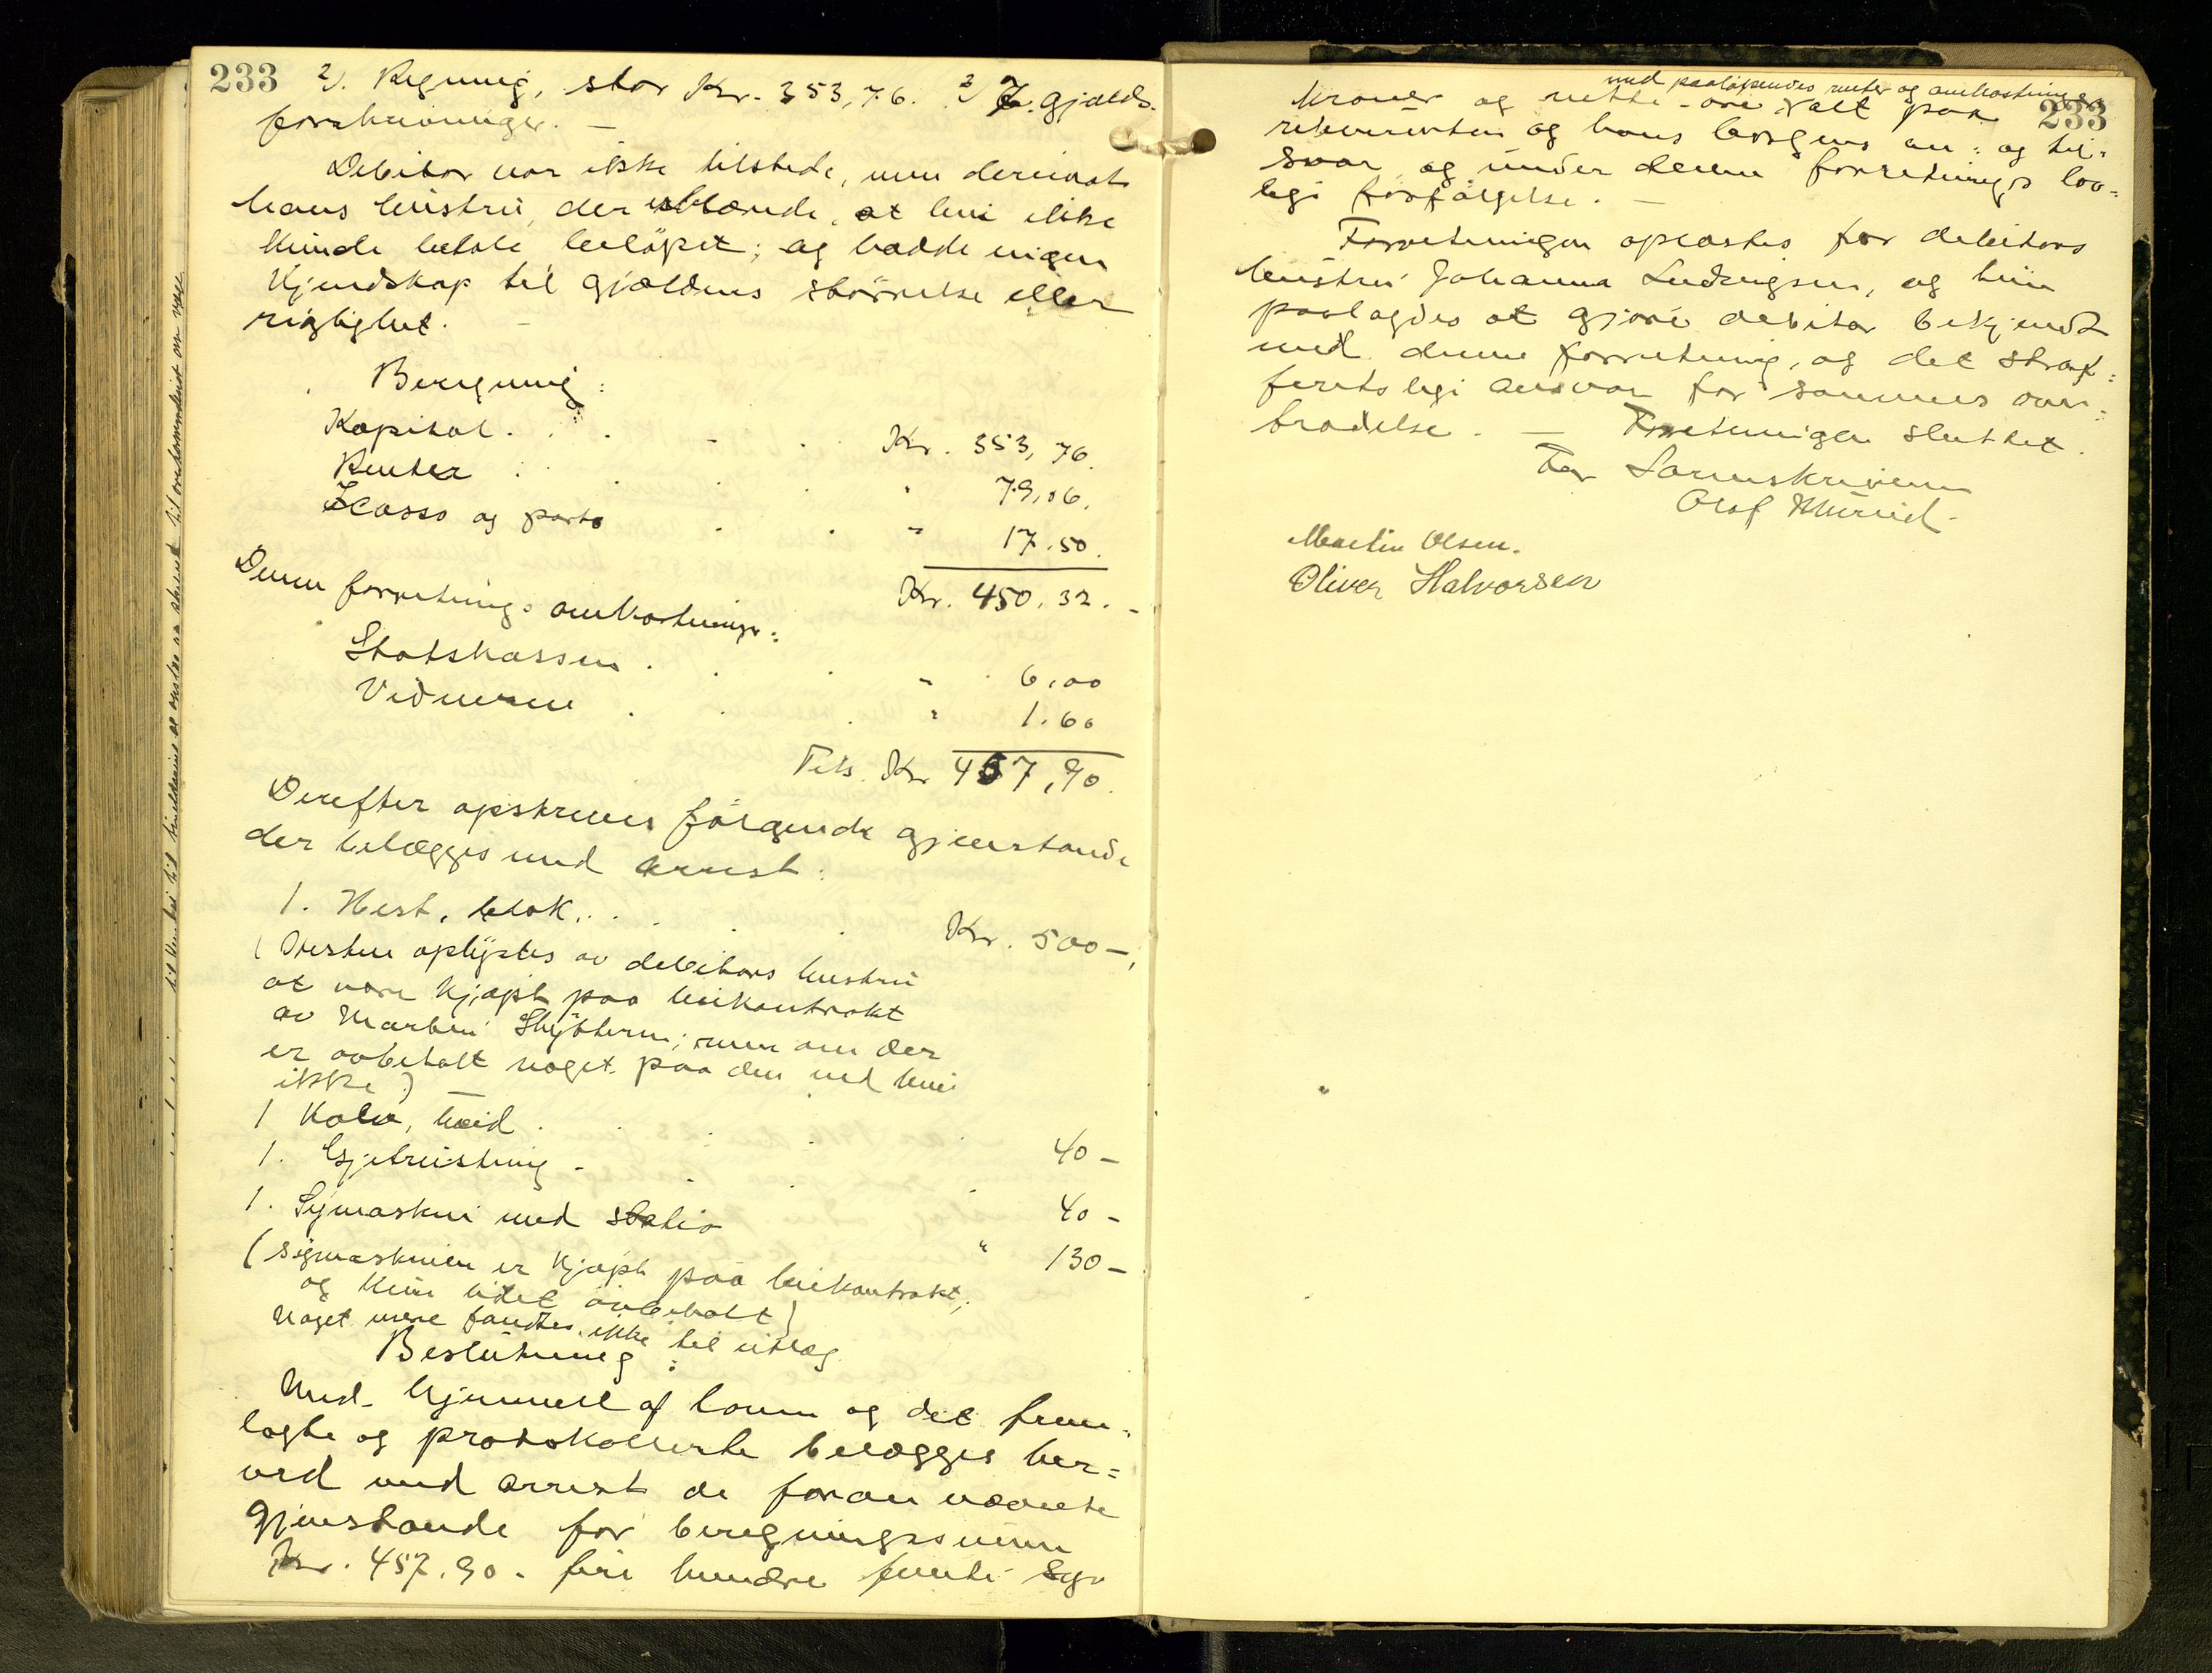 233
2). Regning, stor Kr. 353,76. 3) 7 gjælds-
forskrivninger. —
Debitor var ikke tilstede, men derimot
hans hustru, der erklærede, at hun ikke
kunde betale beløpet; og hadde ingen
Kjendskap til gjældens størrelse eller
rigtighet. —
Beregning:
Kapital . . . . Kr. 353,76.
Renter . . . . " 79,06.
Icasso og porto . . " 17.50.
Kr. 450.32. -
Denne forretnings omkostninger:
Statskassen . . . " 6,00
Vidnerne . . . " 1.60
Tils. Kr 457,90.
Derefter opskreves følgende gjenstande
der belægges med arrest:
1. Hest, blak, . . . Kr. 500 —,
(Hesten oplystes av debitors hustru
at være kjøpt paa leiekontrakt
av Martin ; men om der
er avbetalt noget paa den ved hun
ikke) —
1 Kalv, hvid . . . . 40 —
1. Gjetrustning - . . . 40 -
1. Symaskin med stativ " 130 —
(Symaskinen er kjøpt paa leiekontrakt,
og kun lidet avbetalt)
Noget mere fandtes ikke til utlæg
Beslutning:
Med hjemmel af loven og det frem-
lagte og protokollerte belægges her=
ved med arrest de foran nævnte
gjenstande for beregningssummen
Kr. 457.90. fire hundre femti syv
233
med paaløpendes renter og omkostninger
kroner og nitti øre alt paa
rekvirenten og hans borgens an= og til=
svar og under denne forretnings lov=
lige forfølgelse. —
Forretningen oplæstes for debitors
hustru Johanna Ludvigsen, og hun
paalagdes at gjøre debitor bekjendt
med denne forretning, og det straf=
feretslige ansvar for sammes over=
trædelse. — Forretningen sluttet.
For Sorenskriveren
Olaf
Martin Olsen.
Oliver Halvorsen